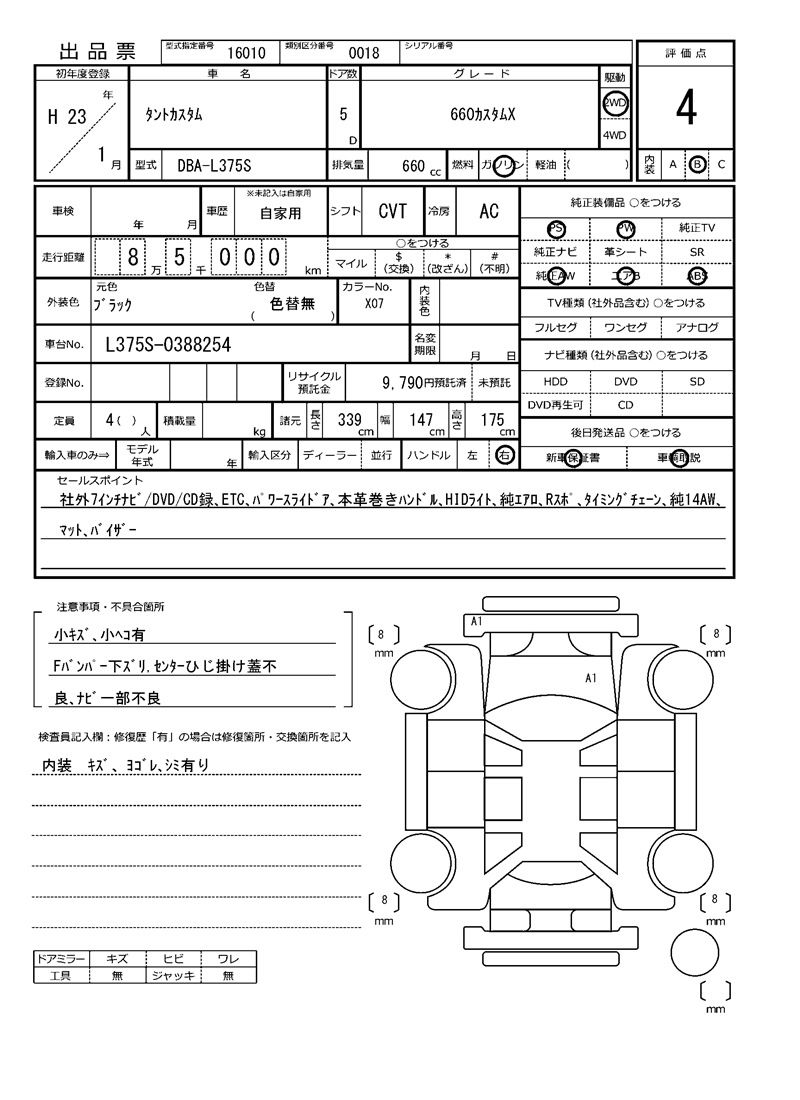 出品票 型式指定番号 16010 類別区分番号 0018 シリアル番号
評価点
4
内装 A B C
初年度登録 車名 ドア数 グレード 駆動
H 23 年 1 月 タントカスタム 5 D 660カスタムX 2WD 4WD
型式 DBA-L375S 排気量 660 cc 燃料 ガソリン 軽油 ( )
車検 年 月 車歴 ※未記入は自家用 自家用 シフト CVT 冷房 AC
走行距離 8 万 5 千 0 0 0 km
○をつける
マイル $(交換) *(改ざん) #(不明)
外装色 元色 ブラック 色替 ( 色替無 ) カラーNo. X07 内装色
車台No. L375S-0388254 名変期限 月 日
登録No. リサイクル預託金 9,790円預託済 未預託
定員 4( )人 積載量 kg 諸元 長さ 339cm 幅 147cm 高さ 175cm
輸入車のみ⇒ モデル年式 年 輸入区分 ディーラー 並行 ハンドル 左 右
純正装備品 ○をつける
PS PW 純正TV
純正ナビ 革シート SR
純正AW エアB ABS
TV種類(社外品含む)○をつける
フルセグ ワンセグ アナログ
ナビ種類(社外品含む)○をつける
HDD DVD SD
DVD再生可 CD
後日発送品 ○をつける
新車保証書 車輌取説
セールスポイント
社外7インチナビ/DVD/CD録、ETC、パワースライドドア、本革巻きハンドル、HIDライト、純エアロ、Rスポ、タイミングチェーン、純14AW、
マット、バイザー
注意事項・不具合箇所
小キズ、小ヘコ有
Fバンパー下ズリ.センターひじ掛け蓋不
良、ナビ一部不良
検査員記入欄:修復歴「有」の場合は修復箇所・交換箇所を記入
内装 キズ、ヨゴレ、シミ有り
ドアミラー キズ ヒビ ワレ
工具 無 ジャッキ 無
A1
8 mm
8 mm
A1
8 mm
8 mm
mm